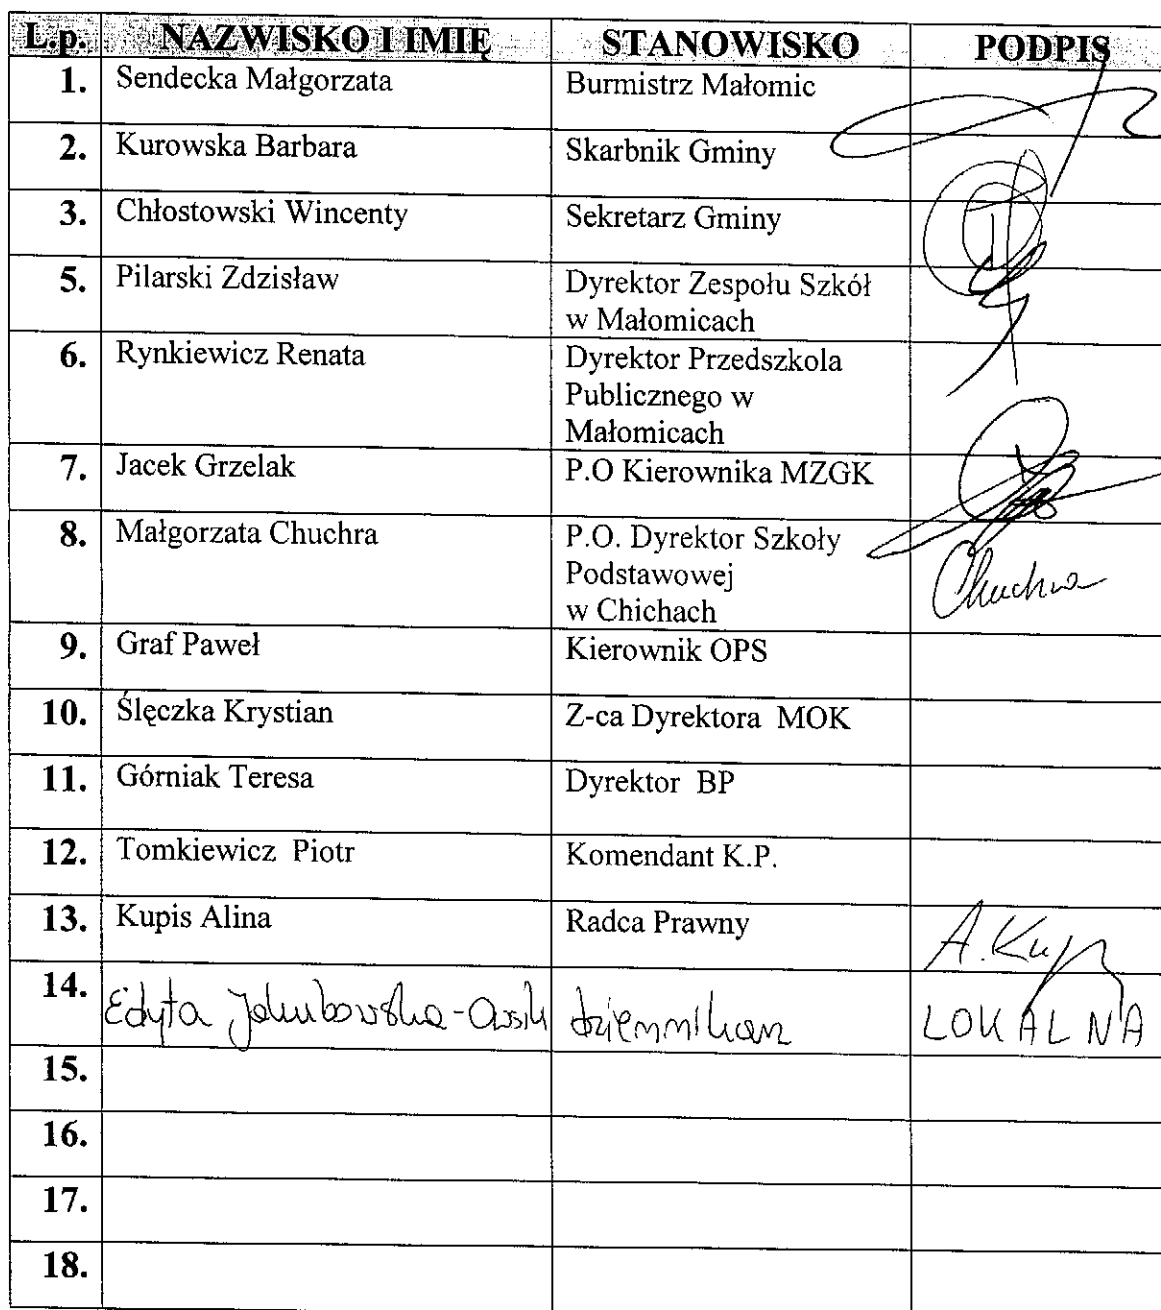 L.p. NAZWISKO I IMIĘ STANOWISKO PODPIS
1. Sendecka Małgorzata Burmistrz Małomic
2. Kurowska Barbara Skarbnik Gminy
3. Chłostowski Wincenty Sekretarz Gminy
5. Pilarski Zdzisław Dyrektor Zespołu Szkół
w Małomicach
6. Rynkiewicz Renata Dyrektor Przedszkola
Publicznego w
Małomicach
7. Jacek Grzelak P.O Kierownika MZGK
8. Małgorzata Chuchra P.O. Dyrektor Szkoły
Podstawowej
w Chichach Chuchra
9. Graf Paweł Kierownik OPS
10. Ślęczka Krystian Z-ca Dyrektora MOK
11. Górniak Teresa Dyrektor BP
12. Tomkiewicz Piotr Komendant K.P.
13. Kupis Alina Radca Prawny A. Kup
14. Edyta Jakubowska- dziennikarz LOKALNA
15.
16.
17.
18.